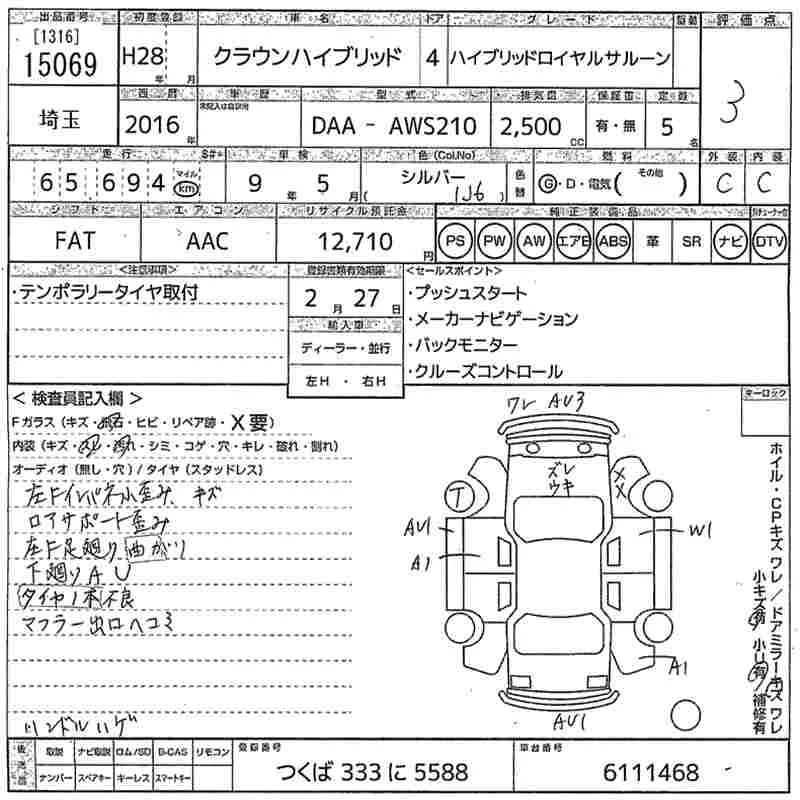 出品番号 初度登録 車名 ドア グレード 駆動 評価点
[1316]
15069 H28 年 月 クラウンハイブリッド 4 ハイブリッドロイヤルサルーン 3
西暦 車歴 型式 排気量 保証書 定員
埼玉 2016年 未記入は自家用 DAA - AWS210 2,500 CC 有・無 5 名
走行 S#* 車検 色(Col,No) 燃料 外装 内装
65,694 マイル km 9年 5月 シルバー ( 1J6 ) 色替 G・D・電気( その他 ) C C
シフト エアコン リサイクル預託金 純正装備品
FAT AAC 12,710円 PS PW AW エアB ABS 革 SR ナビ DTV
<注意事項> 登録書類有効期限 <セールスポイント>
・テンポラリータイヤ取付 2月 27日 ・プッシュスタート
輸入車 ・メーカーナビゲーション
ディーラー・並行 ・バックモニター
左H ・ 右H ・クルーズコントロール
< 検査員記入欄 > キーロック
Fガラス(キズ・飛石・ヒビ・リペア跡・X要)
内装(キズ・汚れ・シミ・コゲ・穴・キレ・破れ・割れ)
オーディオ(無し・穴)/タイヤ(スタッドレス)
左Fインパネ小歪み、キズ
ロアサポート歪み
左F足廻り曲がり
下廻りAU
タイヤ1本不良
マフラー出口ヘコミ
ハンドルハゲ
ワレ AU3
ズレ
ウキ
X
X
T
AU1
A1
W1
A1
AU1
ホイル・CPキズワレ/ドアミラーキズワレ
小キズ有 小U有/補修有
後送品 取説 ナビ取説 ロム/SD B-CAS リモコン 登録番号 車台番号
ナンバー スペアキー キーレス スマートキー つくば 333 に 5588 6111468